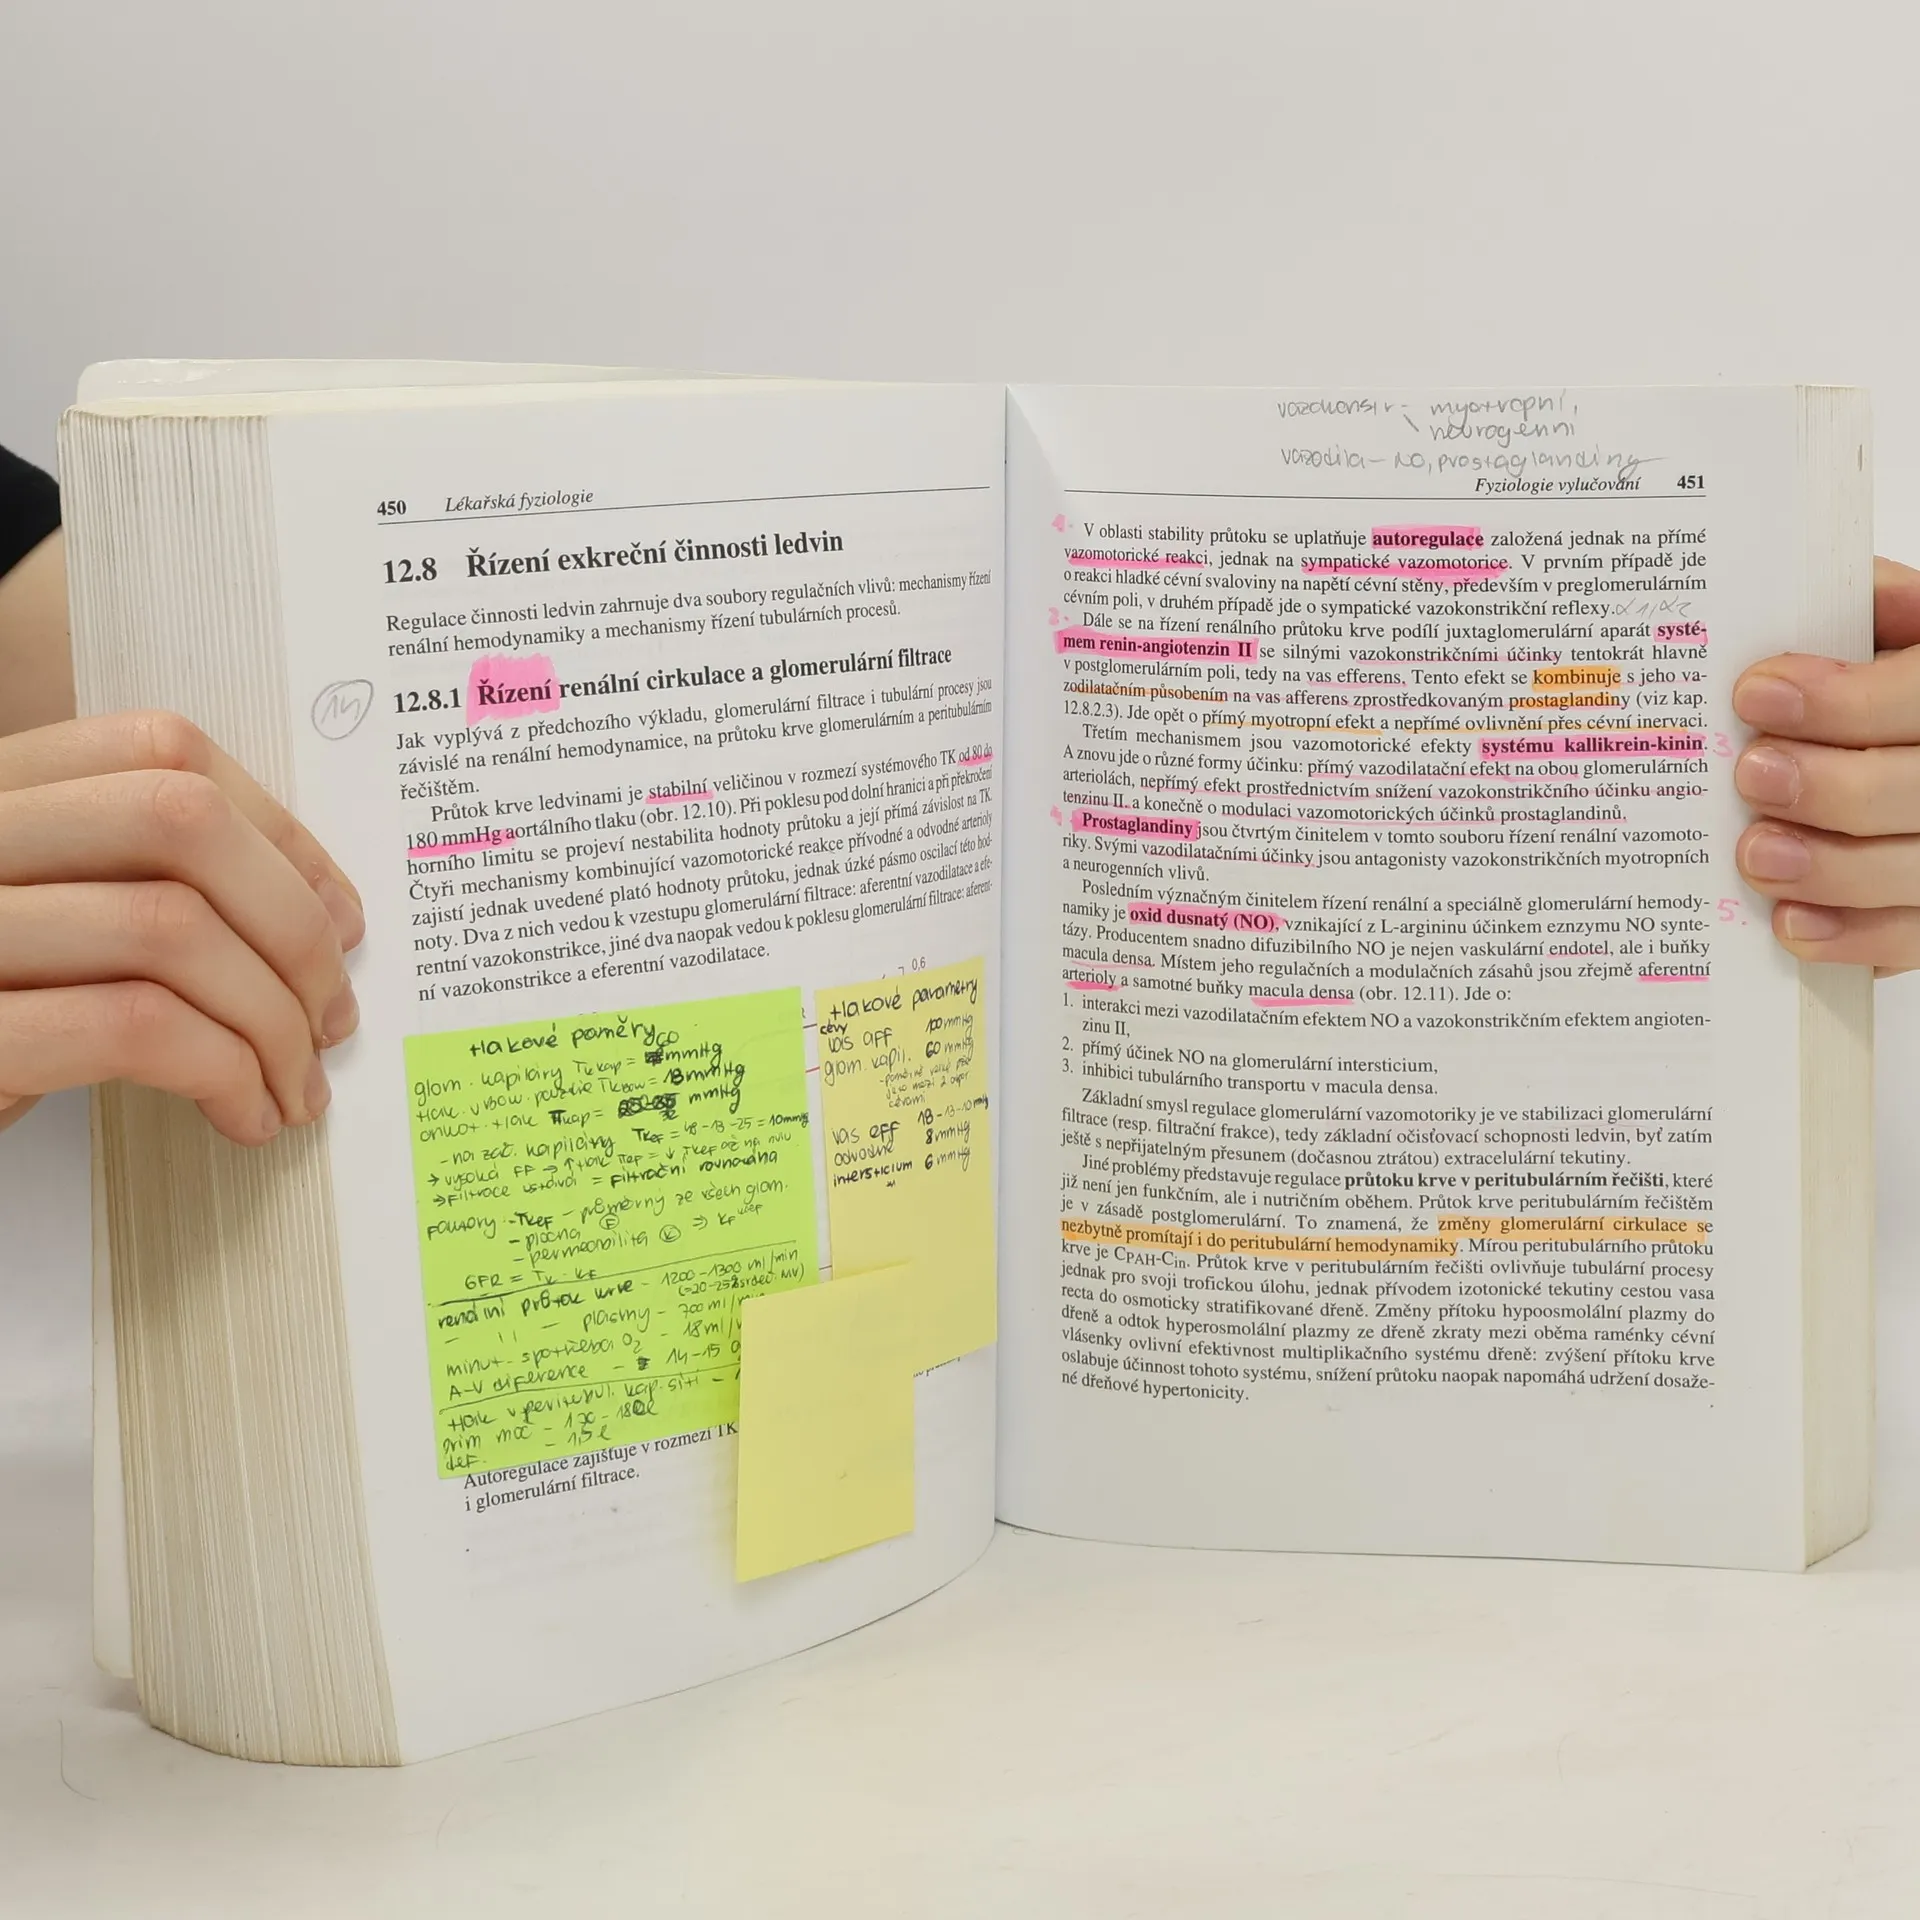 450 Lékařská fyziologie
12.8 Řízení exkreční činnosti ledvin
Regulace činnosti ledvin zahrnuje dva soubory regulačních vlivů: mechanismy řízení
renální hemodynamiky a mechanismy řízení tubulárních procesů.
14
12.8.1 Řízení renální cirkulace a glomerulární filtrace
Jak vyplývá z předchozího výkladu, glomerulární filtrace i tubulární procesy jsou
závislé na renální hemodynamice, na průtoku krve glomerulárním a peritubulárním
řečištěm.
Průtok krve ledvinami je stabilní veličinou v rozmezí systémového TK od 80 do
180 mmHg aortálního tlaku (obr. 12.10). Při poklesu pod dolní hranici a při překročení
horního limitu se projeví nestabilita hodnoty průtoku a její přímá závislost na TK.
Čtyři mechanismy kombinující vazomotorické reakce přívodné a odvodné arterioly
zajistí jednak uvedené plató hodnoty průtoku, jednak úzké pásmo oscilací této hod-
noty. Dva z nich vedou k vzestupu glomerulární filtrace: aferentní vazodilatace a efe-
rentní vazokonstrikce, jiné dva naopak vedou k poklesu glomerulární filtrace: aferent-
ní vazokonstrikce a eferentní vazodilatace.
0,6
tlakové poměry
glom. kapiláry TK kap = 60 mmHg
tlak v Bow. = 18 mmHg
onkot. tlak πkap = mmHg
- na zač. kapiláry TKEF = 48-13-25 = 10mmHg
→ vysoká FF →
→ Filtrace = Filtrační rovnováha
Faktory - TKEF - průměrný ze všech glom.
- plocha
- permeabilita (K) ⇒ KF
GFR = TK · KF
renální průtok krve - 1200-1300 ml/min
(=20-25% srdeč. MV)
- 11 - plasmy - 700 ml/
minut. spotřeba O2 - 18 ml/
A-V diference - 14-15
tlak v peritubul. kap. síti -
prim moč = 170-180 l
def. = 1,5 l
tlakové parametry
cévy
vas aff 100 mmHg
glom. kapil. 60 mmHg
cévami
vas eff 18-13-10 mmHg
odvodné 8 mmHg
intersticium 6 mmHg
Autoregulace zajišťuje v rozmezí TK
i glomerulární filtrace.
vazokonstr - myotropní,
neurogenní
vazodila - NO, prostaglandiny
Fyziologie vylučování 451
1. V oblasti stability průtoku se uplatňuje autoregulace založená jednak na přímé
vazomotorické reakci, jednak na sympatické vazomotorice. V prvním případě jde
o reakci hladké cévní svaloviny na napětí cévní stěny, především v preglomerulárním
cévním poli, v druhém případě jde o sympatické vazokonstrikční reflexy. α1, α2
2. Dále se na řízení renálního průtoku krve podílí juxtaglomerulární aparát systé-
mem renin-angiotenzin II se silnými vazokonstrikčními účinky tentokrát hlavně
v postglomerulárním poli, tedy na vas efferens. Tento efekt se kombinuje s jeho va-
zodilatačním působením na vas afferens zprostředkovaným prostaglandiny (viz kap.
12.8.2.3). Jde opět o přímý myotropní efekt a nepřímé ovlivnění přes cévní inervaci.
Třetím mechanismem jsou vazomotorické efekty systému kallikrein-kinin. 3
A znovu jde o různé formy účinku: přímý vazodilatační efekt na obou glomerulárních
arteriolách, nepřímý efekt prostřednictvím snížení vazokonstrikčního účinku angio-
tenzinu II. a konečně o modulaci vazomotorických účinků prostaglandinů.
4. Prostaglandiny jsou čtvrtým činitelem v tomto souboru řízení renální vazomoto-
riky. Svými vazodilatačními účinky jsou antagonisty vazokonstrikčních myotropních
a neurogenních vlivů.
Posledním význačným činitelem řízení renální a speciálně glomerulární hemody-
namiky je oxid dusnatý (NO), vznikající z L-argininu účinkem eznzymu NO synte- 5.
tázy. Producentem snadno difuzibilního NO je nejen vaskulární endotel, ale i buňky
macula densa. Místem jeho regulačních a modulačních zásahů jsou zřejmě aferentní
arterioly a samotné buňky macula densa (obr. 12.11). Jde o:
1. interakci mezi vazodilatačním efektem NO a vazokonstrikčním efektem angioten-
zinu II,
2. přímý účinek NO na glomerulární intersticium,
3. inhibici tubulárního transportu v macula densa.
Základní smysl regulace glomerulární vazomotoriky je ve stabilizaci glomerulární
filtrace (resp. filtrační frakce), tedy základní očisťovací schopnosti ledvin, byť zatím
ještě s nepřijatelným přesunem (dočasnou ztrátou) extracelulární tekutiny.
Jiné problémy představuje regulace průtoku krve v peritubulárním řečišti, které
již není jen funkčním, ale i nutričním oběhem. Průtok krve peritubulárním řečištěm
je v zásadě postglomerulární. To znamená, že změny glomerulární cirkulace se
nezbytně promítají i do peritubulární hemodynamiky. Mírou peritubulárního průtoku
krve je CPAH-Cin. Průtok krve v peritubulárním řečišti ovlivňuje tubulární procesy
jednak pro svoji trofickou úlohu, jednak přívodem izotonické tekutiny cestou vasa
recta do osmoticky stratifikované dřeně. Změny přítoku hypoosmolální plazmy do
dřeně a odtok hyperosmolální plazmy ze dřeně zkraty mezi oběma raménky cévní
vlásenky ovlivní efektivnost multiplikačního systému dřeně: zvýšení přítoku krve
oslabuje účinnost tohoto systému, snížení průtoku naopak napomáhá udržení dosaže-
né dřeňové hypertonicity.